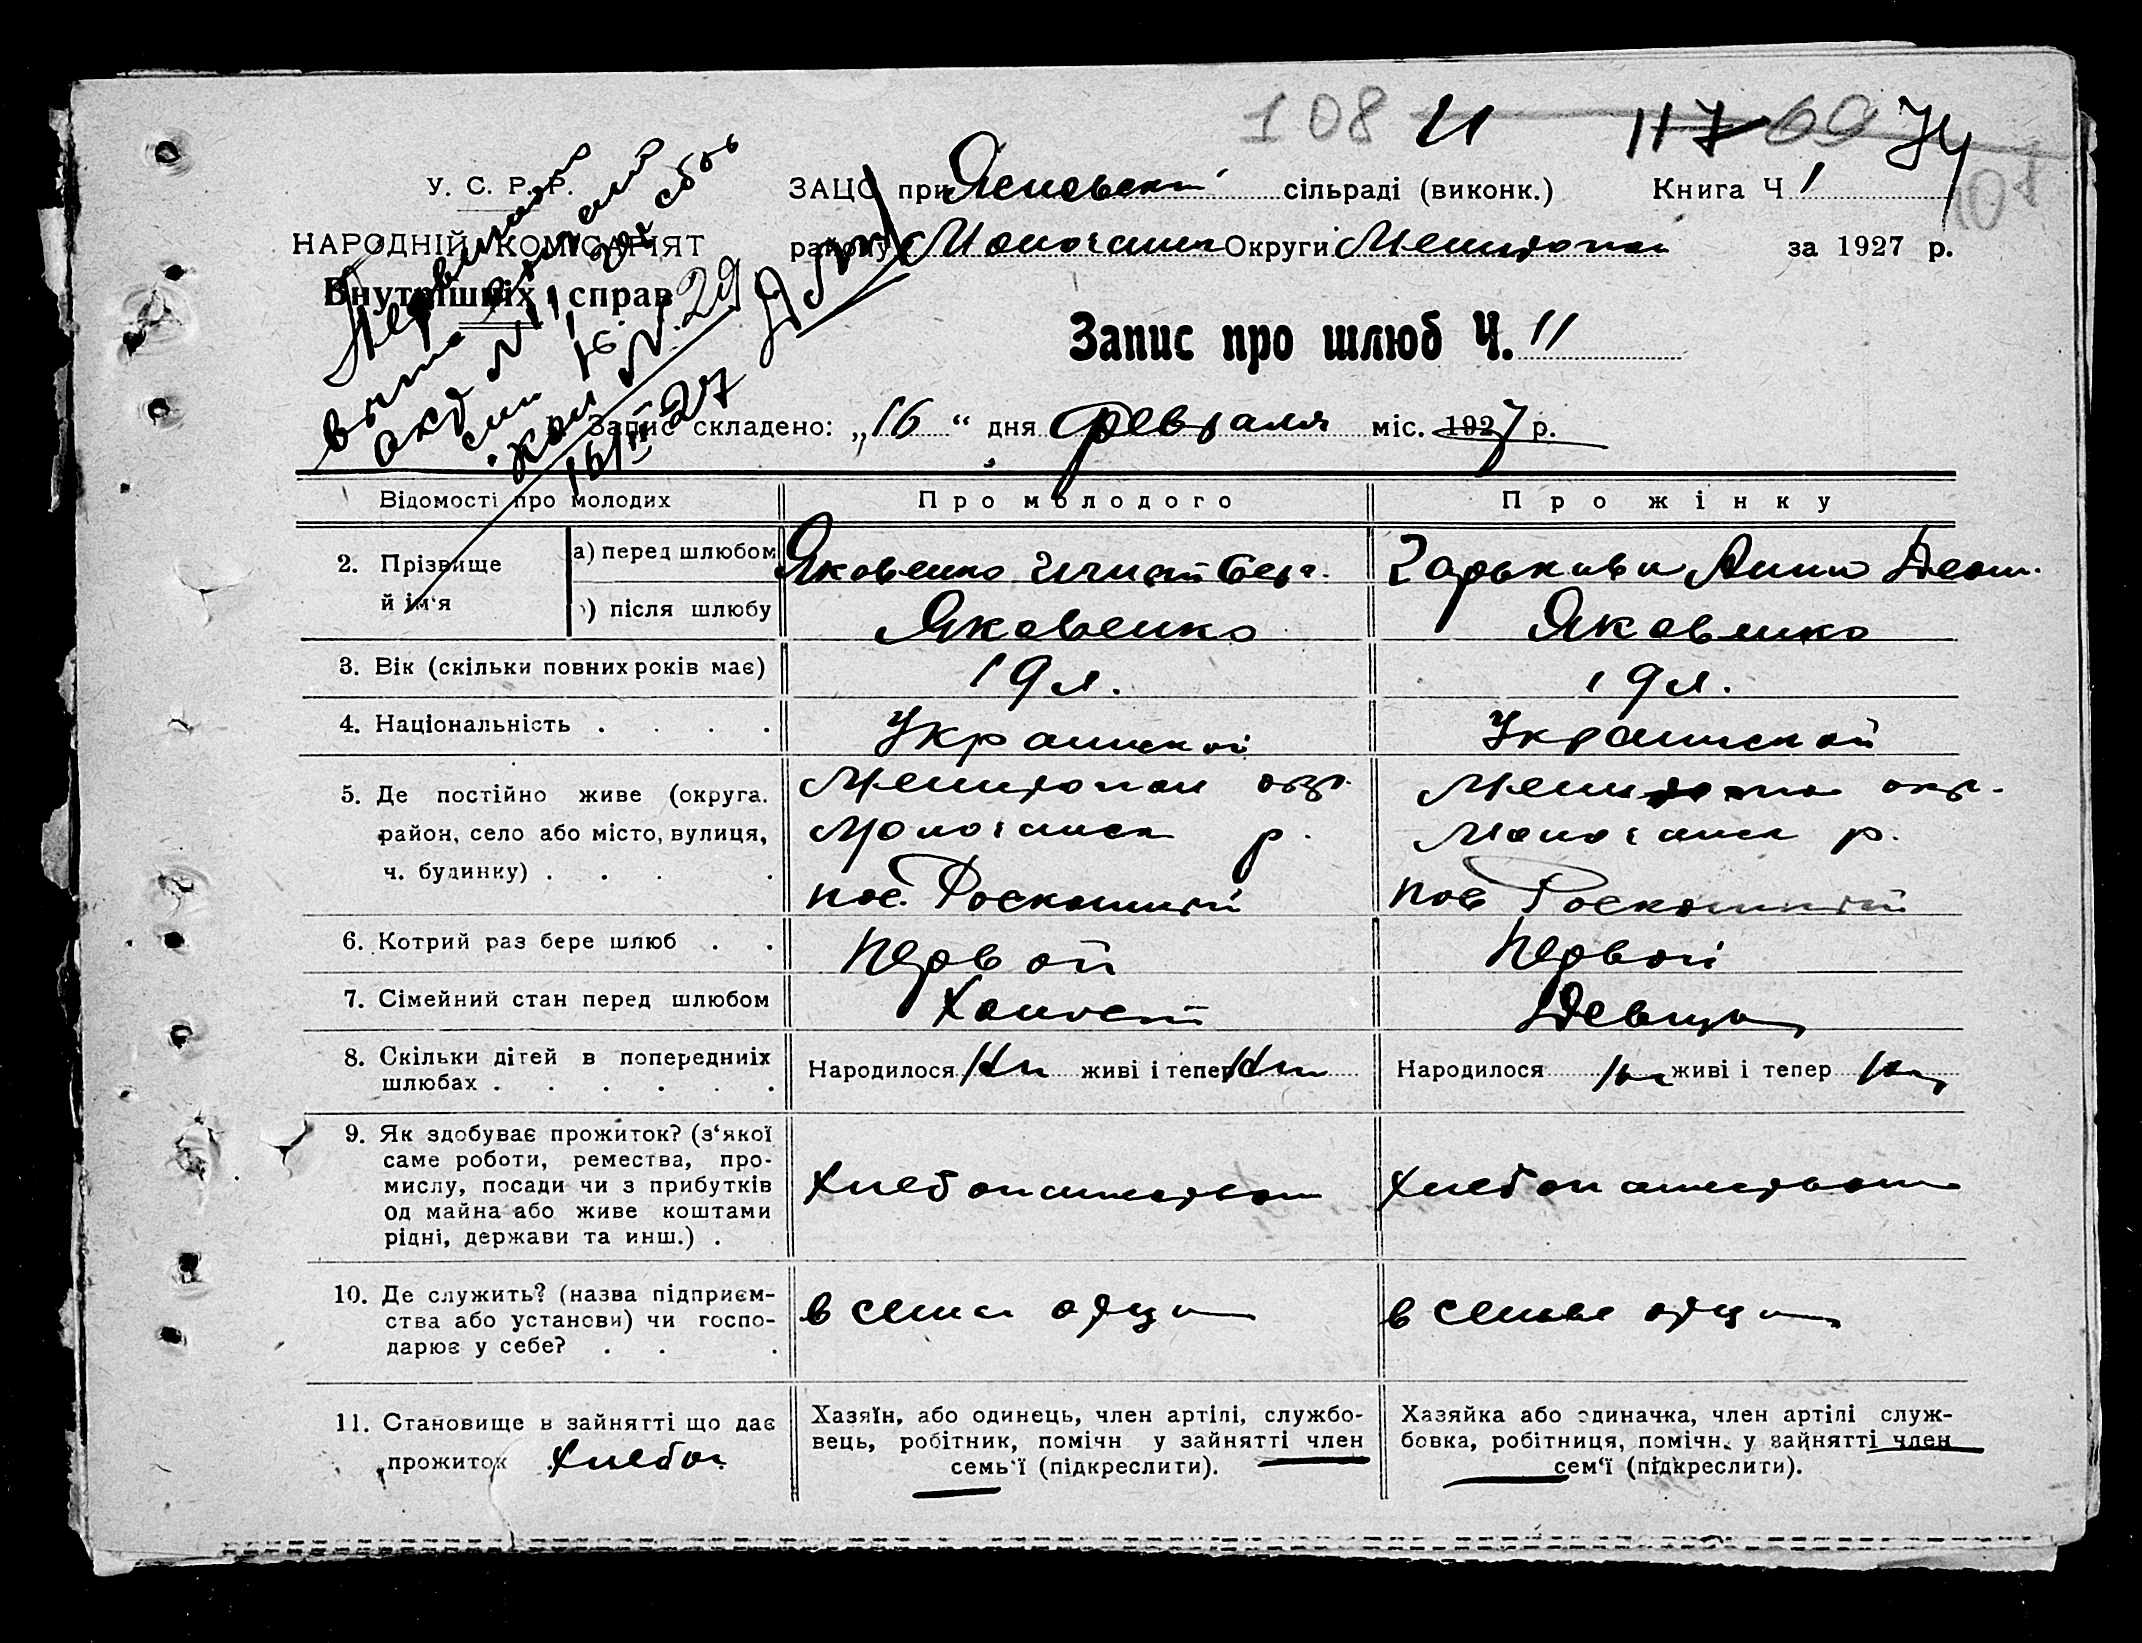 108 11 117 69 74
101
У. С. Р. Р.
НАРОДНІЙ КОМІСАРІЯТ
Внутрішніх справ
ЗАЦС при Ясновской сільраді (виконк.) Книга Ч 1
району Молочанск Округи Мелитопол за 1927 р.
Запис про шлюб Ч. 11
Запис складено: „16“ дня Февраля міс. 1927 р.
16/II 27
Відомості про молодих
Про молодого
Про жінку
2. Прізвище й ім'я
а) перед шлюбом
Яковенко Игнат
Харькова Анна
б) після шлюбу
Яковенко
Яковенко
3. Вік (скільки повних років має)
19 л.
19 л.
4. Національність . . . .
Украинской
Украинской
5. Де постійно живе (округа.
район, село або місто, вулиця,
ч. будинку) . . . .
Мелитопол окр.
Молочанск р.
пос. Роскошный
Мелитопол окр.
Молочанск р.
пос Роскошный
6. Котрий раз бере шлюб . .
Первой
Первой
7. Сімейний стан перед шлюбом
Холост
Девица
8. Скільки дітей в попередніх
шлюбах . . . . . .
Народилося Нет живі і тепер Нет
Народилося Нет живі і тепер Нет
9. Як здобуває прожиток? (з'якої
саме роботи, ремества, про-
мислу, посади чи з прибутків
од майна або живе коштами
рідні, держави та инш.) .
Хлебопашеством
Хлебопашеством
10. Де служить? (назва підприєм-
ства або установи) чи госпо-
дарює у себе? . . .
в семи отца
в семье отца
11. Становище в зайнятті що дає
прожиток Хлебоп.
Хазяїн, або одинець, член артілі, службо-
вець, робітник, помічн у зайнятті член
семь'ї (підкреслити).
Хазяйка або одиначка, член артілі служ-
бовка, робітниця, помічн. у зайнятті член
сем'ї (підкреслити).